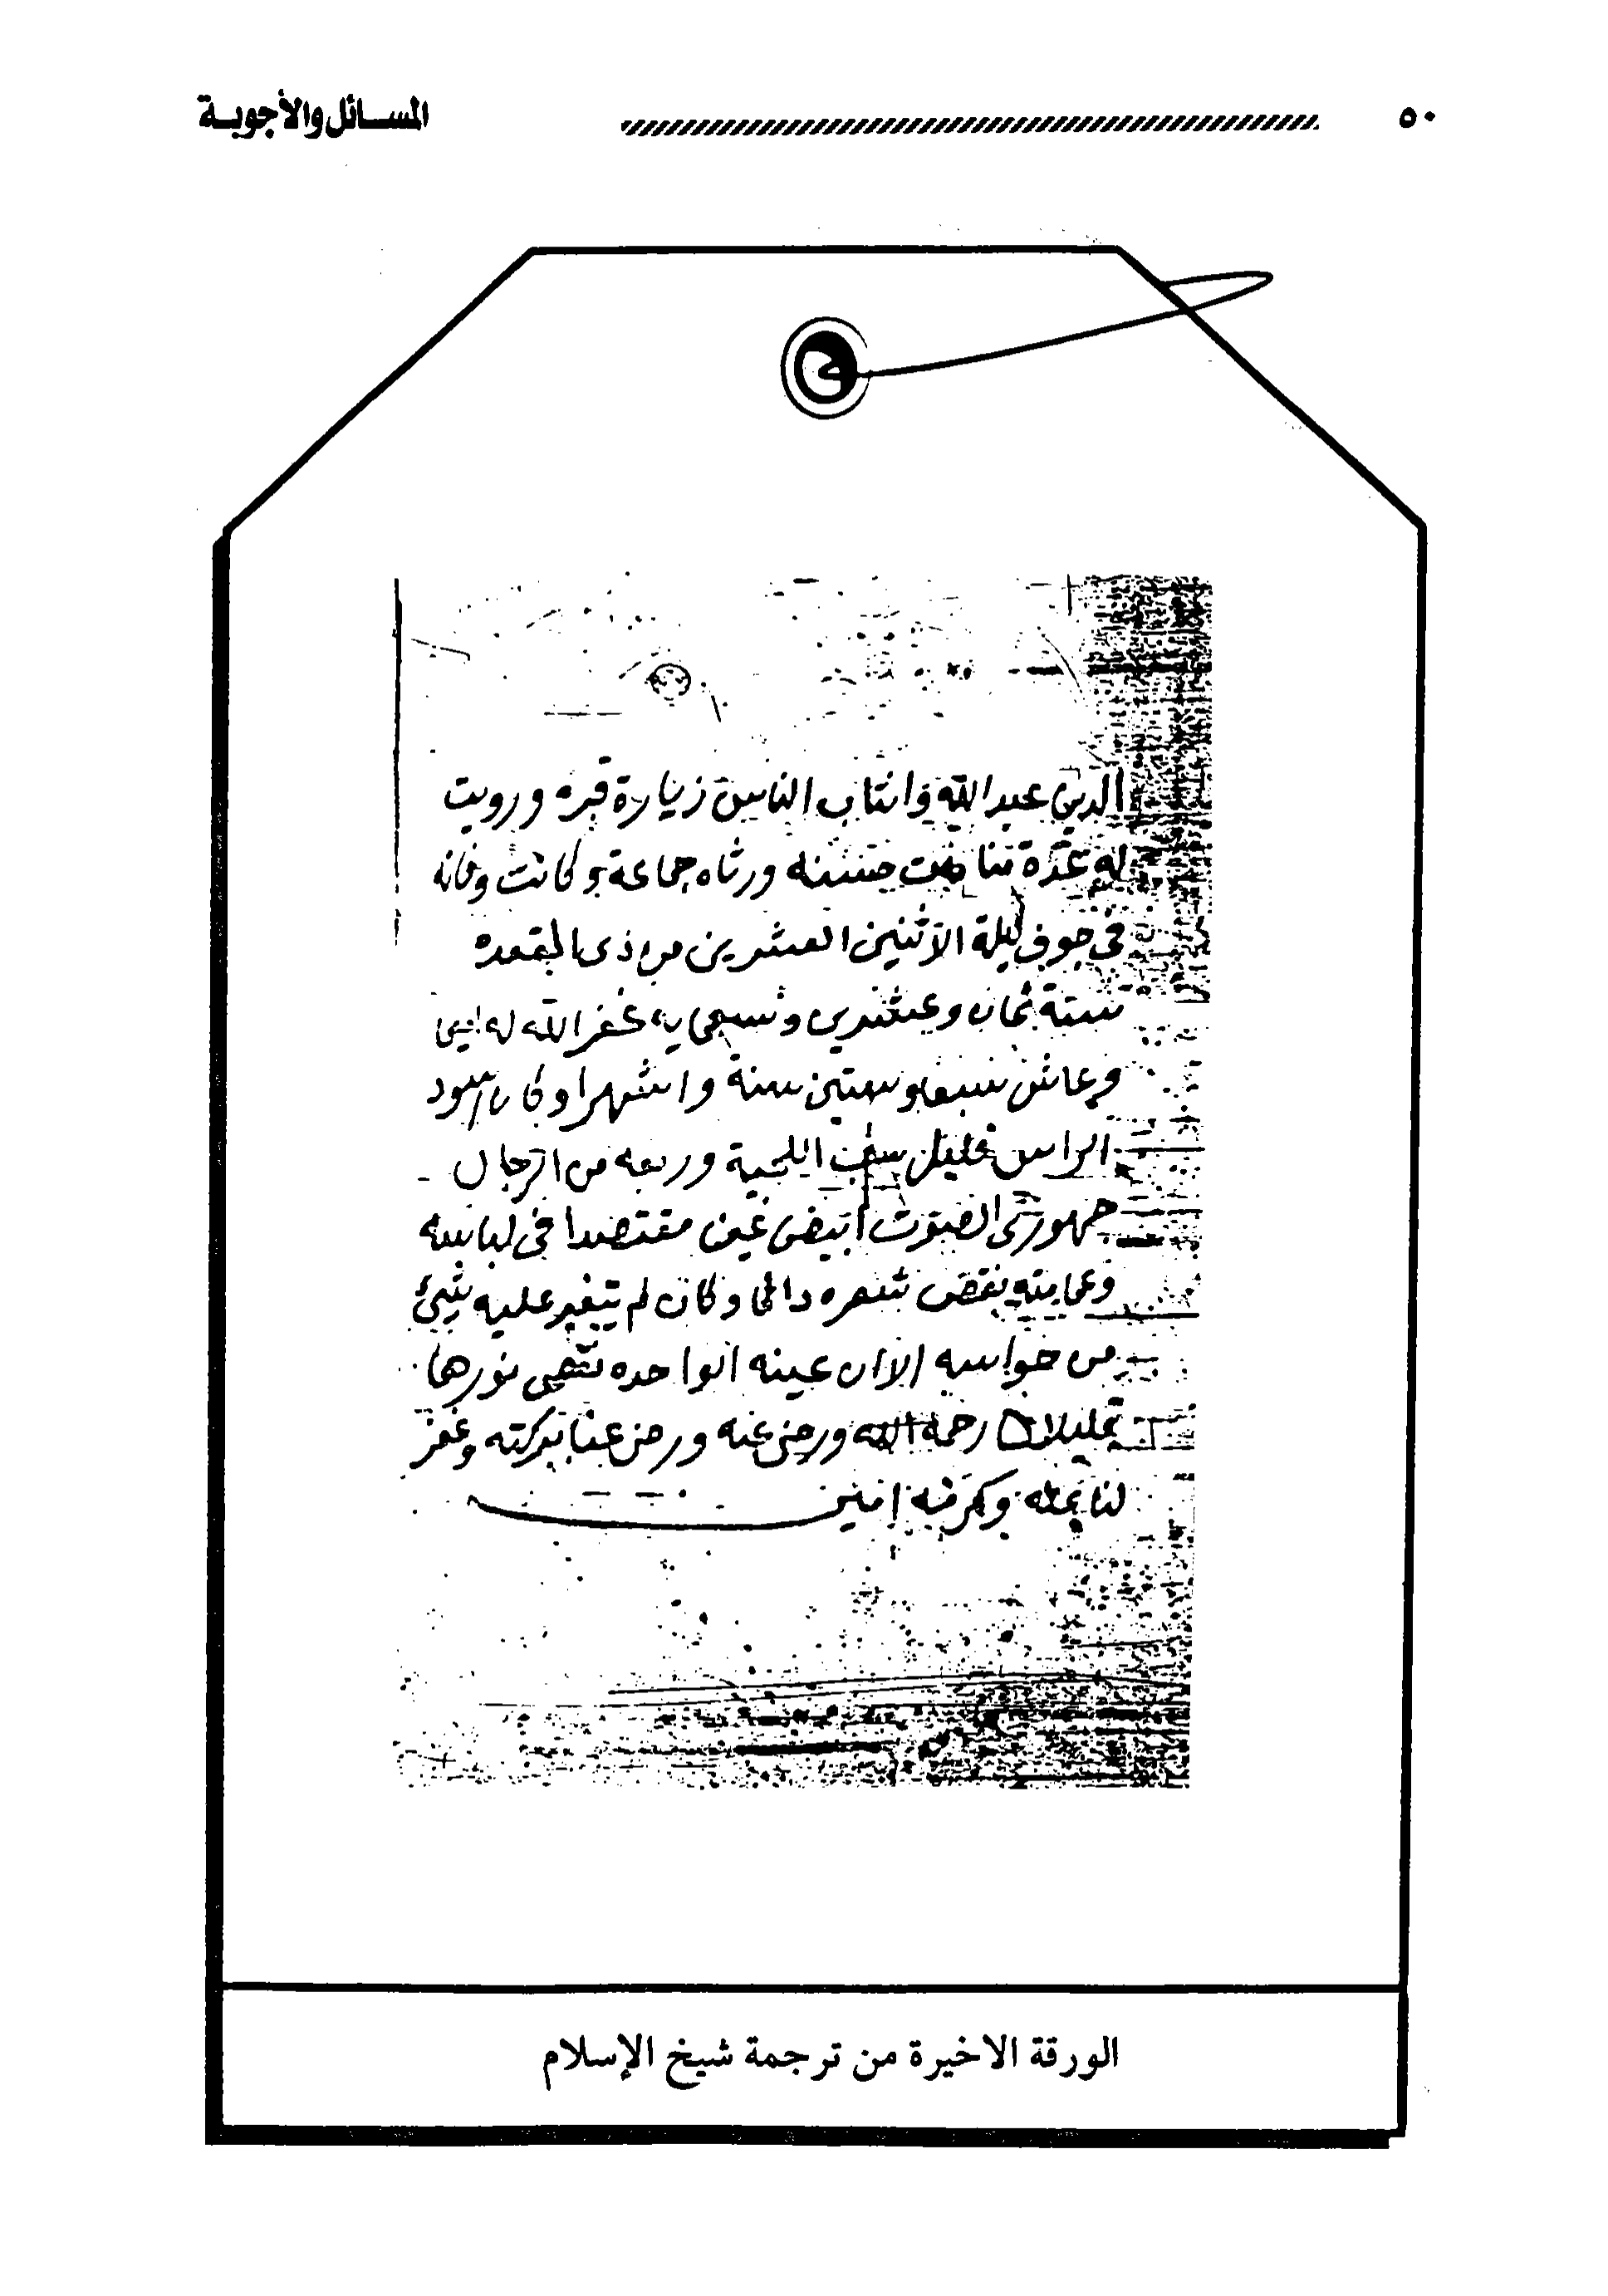 ٥٠
المسائل والأجوبة
الدين عبد الله وانتاب الناس زيارة قبره ورويت
له عدة منامات حسنه ورثاه جماعة وكانت وفاته
في جوف ليلة الاثنين العشرين من ذي القعده
سنة ثمان وعشرين وسبعمايه غفر الله له
وعاش سبعا وستين سنة واشهرا وكان اسود
الراس قليل شيب اللحية وربعه من الرجال
جهوري الصوت ابيض مقتصدا في لباسه
وعمامته يقص شعره دائما وكان لم يتغير عليه شيئ
من حواسه الا ان عينه الواحده نورها
قليلا رحمه الله ورضي عنه ورضي عنا ببركته وغفر
لنا بمنه وكرمه امين
الورقة الاخيرة من ترجمة شيخ الإسلام